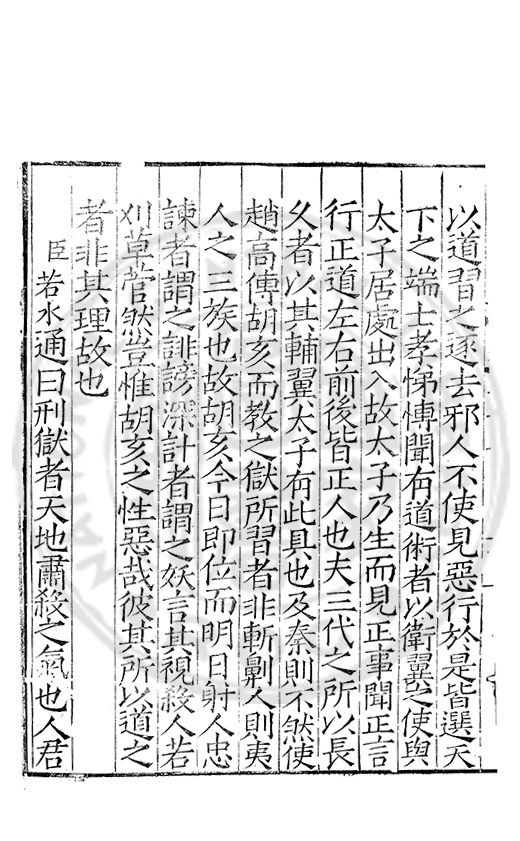 以道習之逐去邪人不使見惡行於是皆選天
下之端士孝悌博聞有道術者以衛翼之使與
太子居處出入故太子乃生而見正事聞正言
行正道左右前後皆正人也夫三代之所以長
久者以其輔翼太子有此具也及秦則不然使
趙高傅胡亥而教之獄所習者非斬劓人則夷
人之三族也故胡亥今日即位而明日射人忠
諫者謂之誹謗深計者謂之妖言其視殺人若
刈草菅然豈惟胡亥之性惡哉彼其所以道之
者非其理故也
臣若水通曰刑獄者天地肅殺之氣也人君